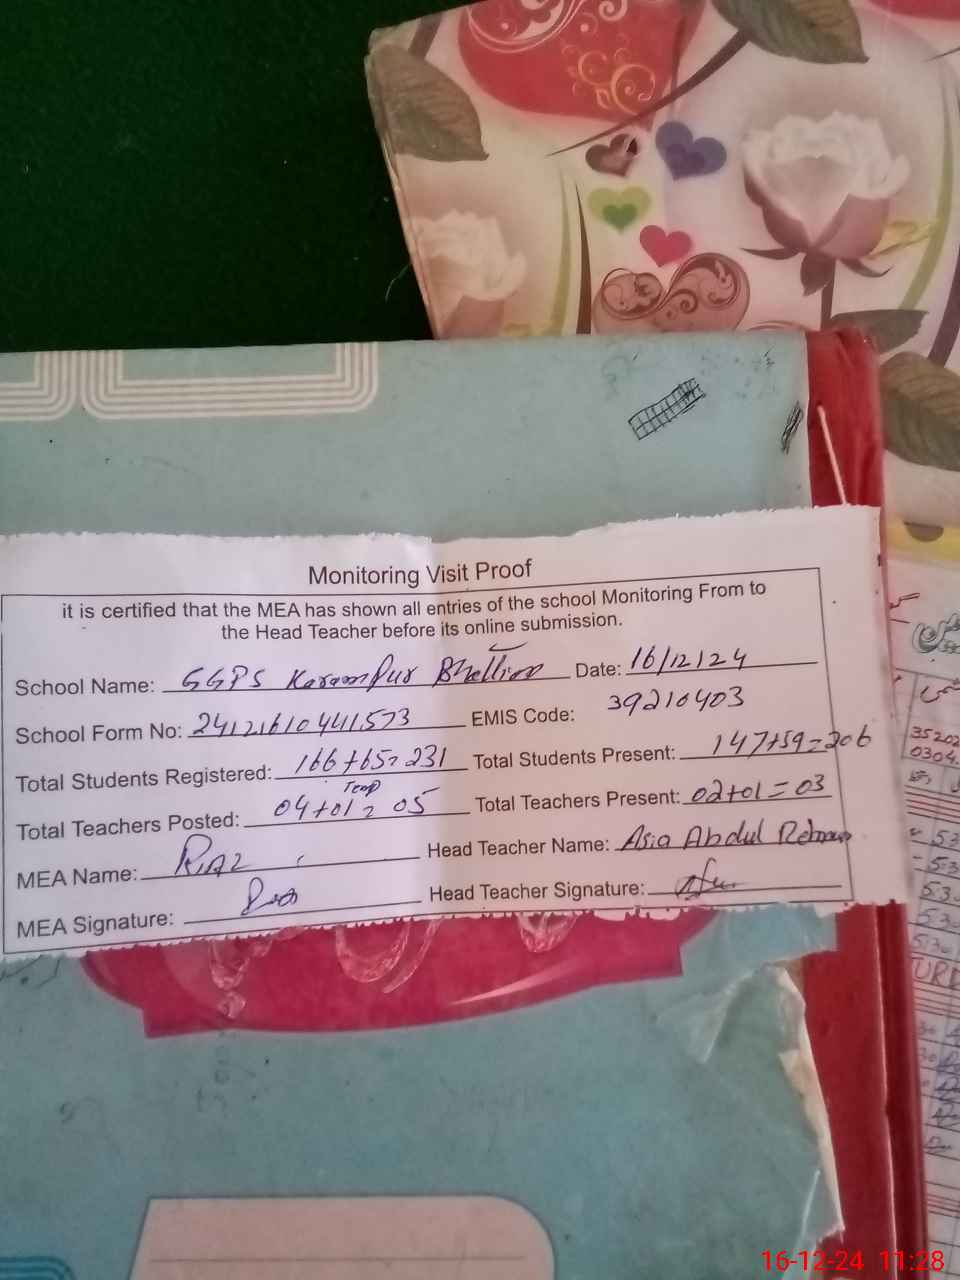 Monitoring Visit Proof
it is certified that the MEA has shown all entries of the school Monitoring From to
the Head Teacher before its online submission.
School Name: GGPS Karampur Date: 16/12/24
School Form No: EMIS Code: 39210403
Total Students Registered: 166+65=231 Total Students Present: 147+59=206
Temp
Total Teachers Posted: 04+01=05 Total Teachers Present: 02+01=03
MEA Name: Riaz Head Teacher Name: Asia Abdul Rehman
MEA Signature: Head Teacher Signature:
35202
0304.
16-12-24 11:28